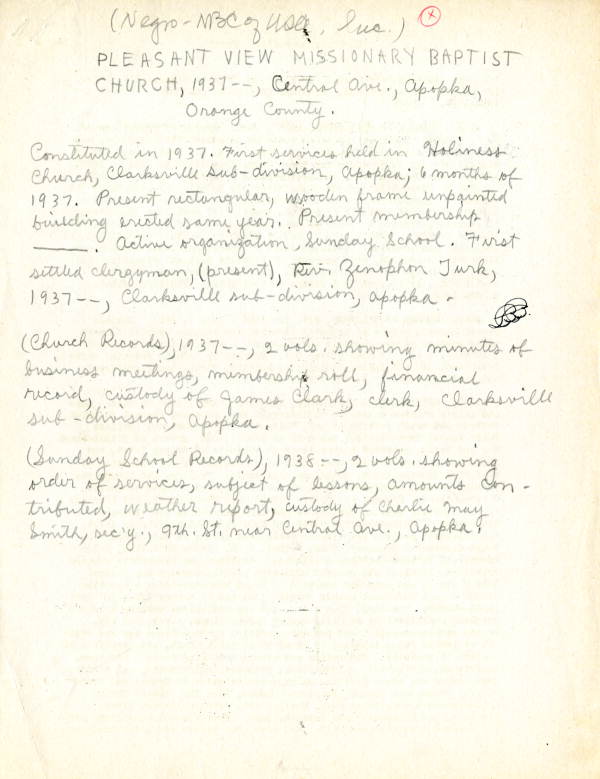 (Negro - NBC of USA, Inc.)
PLEASANT VIEW MISSIONARY BAPTIST
CHURCH, 1937--, Central Ave., Apopka,
Orange County.
Constituted in 1937. First services held in Holiness
Church, Clarksville sub-division, Apopka; 6 months of
1937. Present rectangular, wooden frame unpainted
building erected same year. Present membership
_____. Active organization, Sunday School. First
settled clergyman, (present), Rev. Zenophon Turk,
1937--, Clarksville sub-division, Apopka.
(Church Records), 1937--, 2 vols. showing minutes of
business meetings, membership roll, financial
record, custody of James Clark, clerk, Clarksville
sub-division, Apopka.
(Sunday School Records), 1938--, 2 vols. showing
order of services, subject of lessons, amounts con-
tributed, weather report, custody of Charlie May
Smith, sec'y., 9th. St. near Central Ave., Apopka.